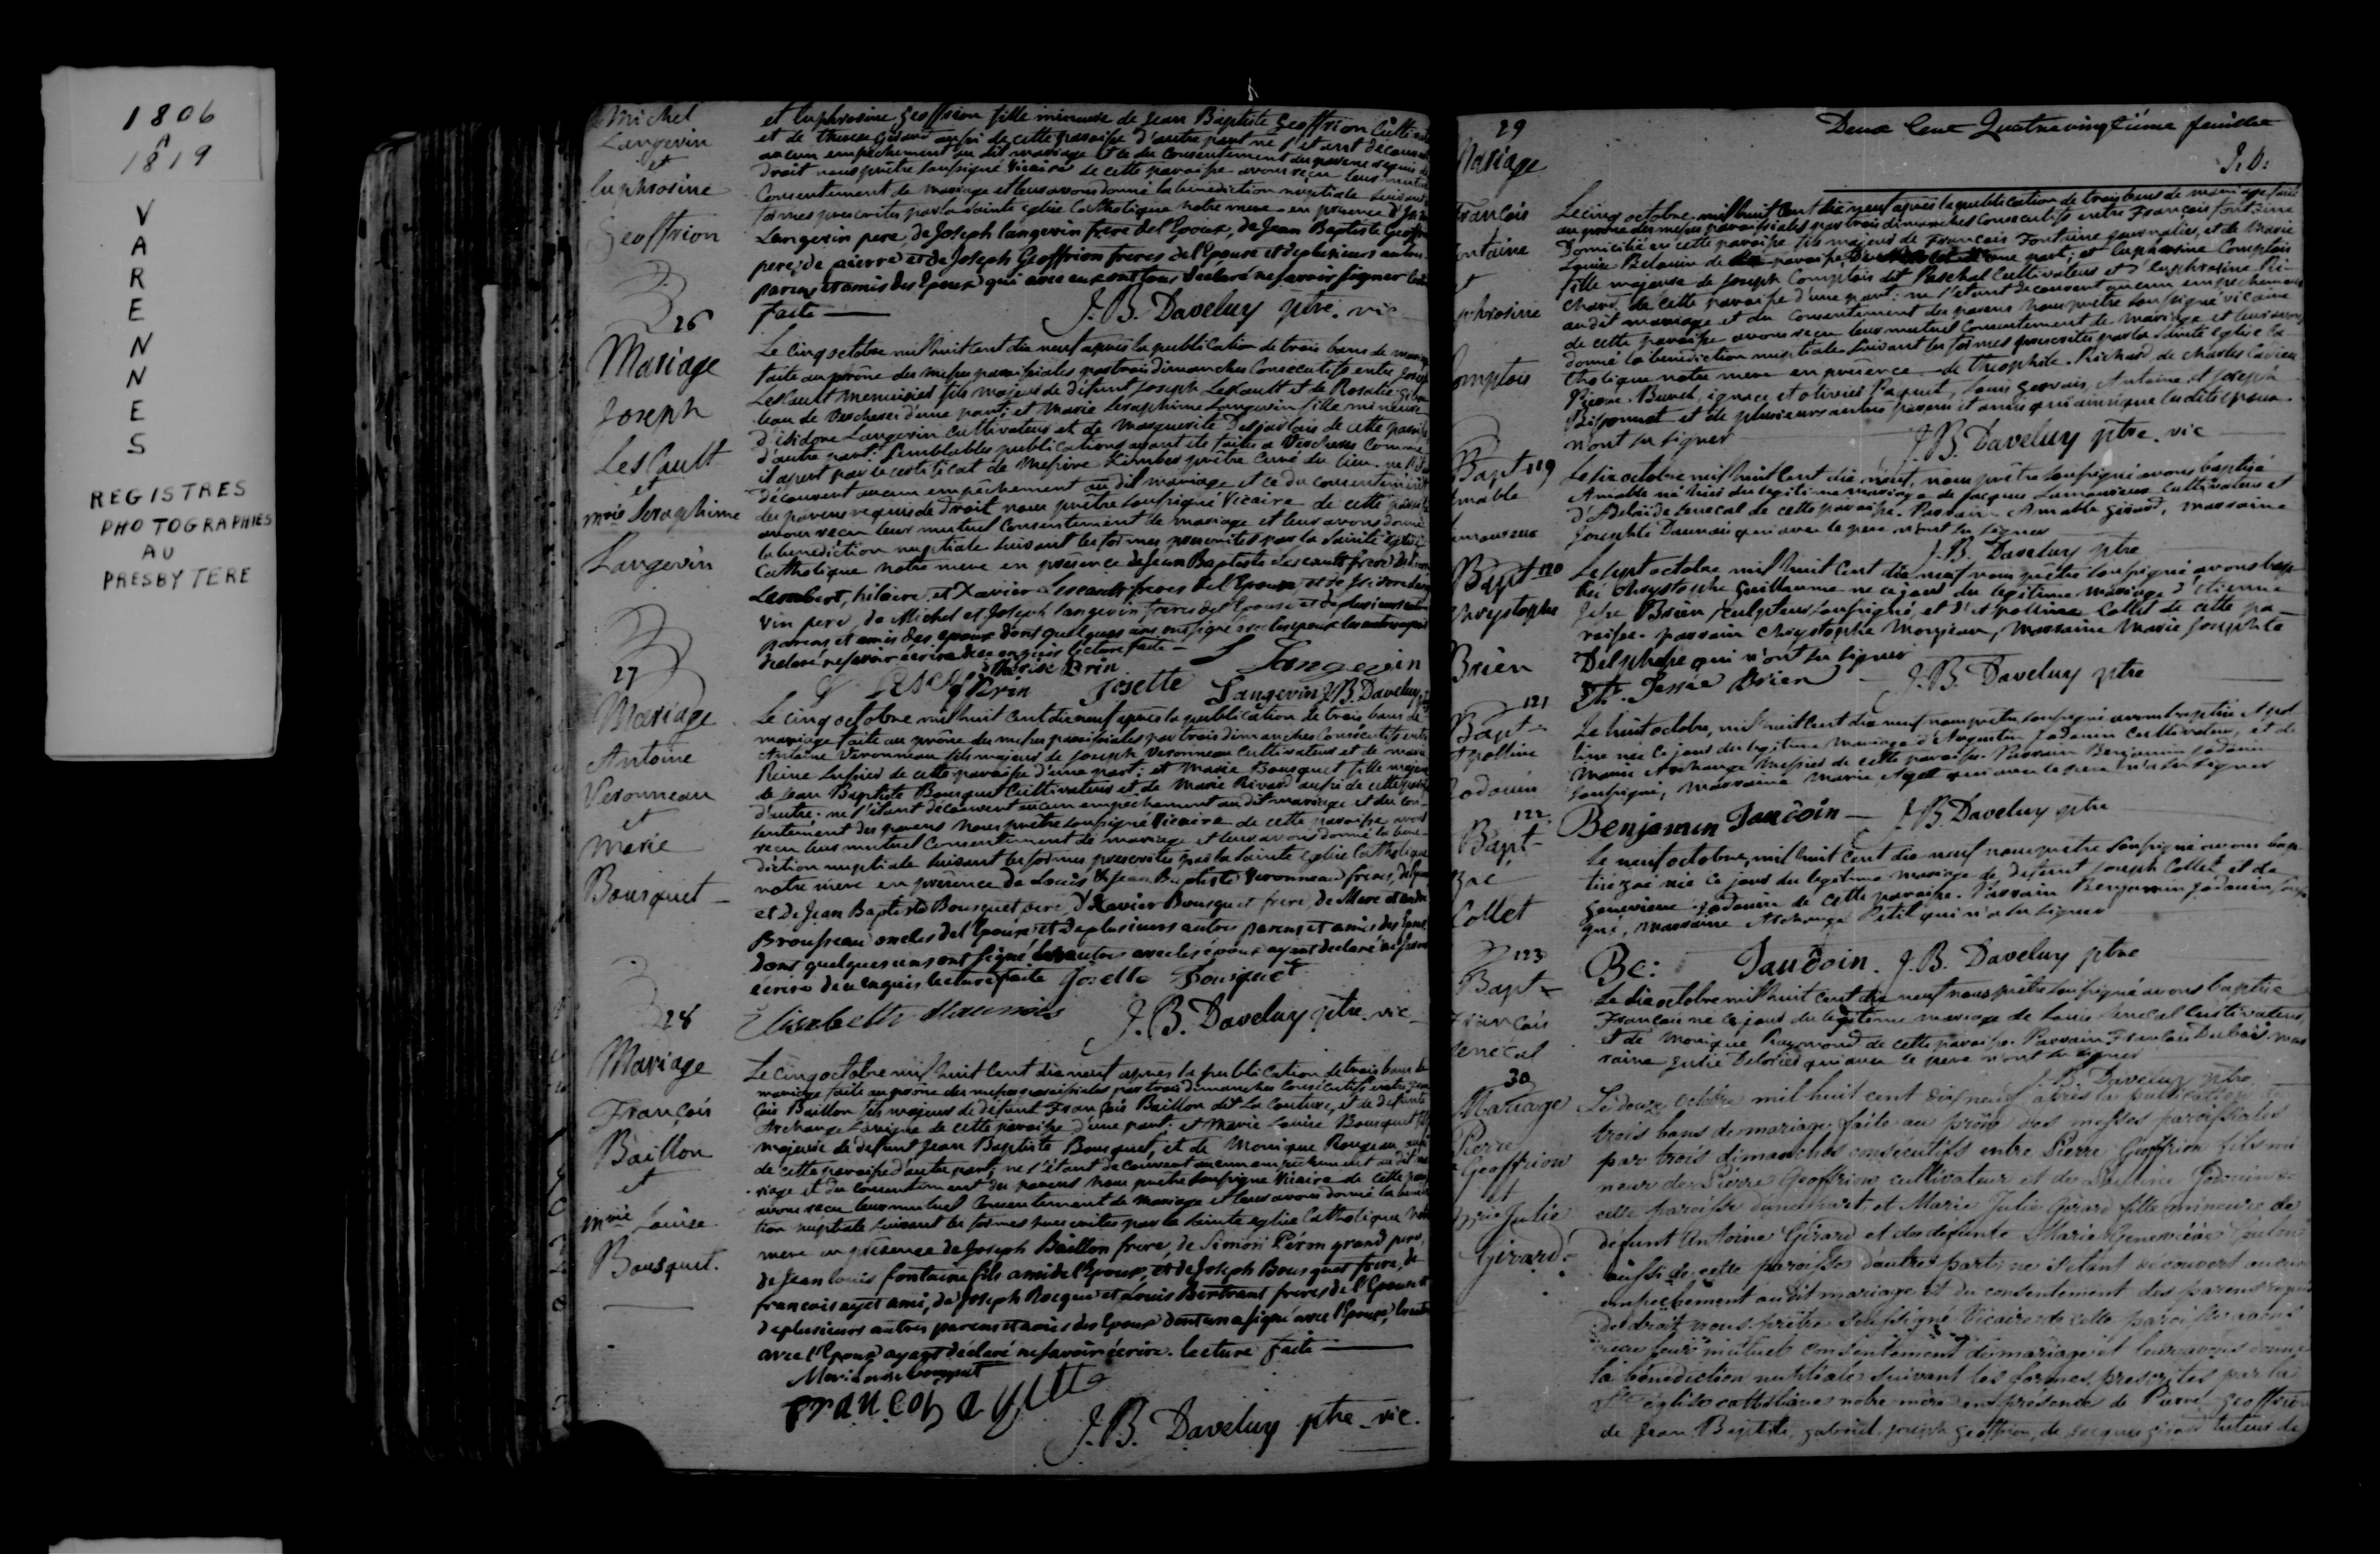 1806
A
1819
VARENNES
REGISTRES
PHOTOGRAPHIES
AU
PRESBYTERE
Michel
Langevin
et
Euphrosine
Geoffrion
et Euphrosine Geoffrion fille mineure de Jean Baptiste Geoffrion
et de therese Girard aussi de cette paroisse d'autre part ne
aucun empêchement au dit mariage et ce du Consentement des parens requis
droit nous prêtre soussigné Vicaire de cette paroisse avons reçu leur
Consentement de mariage et leur avons donné la benediction nuptiale suivant
formes prescrites par la sainte eglise Catholique notre mere en présence
Langevin pere, de Joseph langevin frere de l'Epoux, de Jean Baptiste
pere, de pierre et de Joseph Geoffrion freres de l'Epouse et de plusieurs autres
parens et amis des Epoux qui avec eux ont tous déclaré ne savoir signer
faite
J. B. Daveluy ptre. vic
26
Mariage
Joseph
LesCault
et
Marie Seraphine
Langevin
Le cinq octobre mil huit cent dix neuf après la publication de trois bans de
faite au prône des messes paroissiales par trois dimanches Consecutifs entre Joseph
LesCault menuisier fils majeur de défunt Joseph LesCault et de Rosalie
de Vercheres d'une part; et Marie Seraphine Langevin fille mineure
d'isidore Langevin cultivateur et de Marguerite Desjarlais de cette
d'autre part. Semblables publications ayant été faites a Vercheres Comme
il apert par le certificat de Messire Kimber prêtre Curé du lieu. ne
découvert aucun empêchement au dit mariage et ce du consentement
des parens requis de droit nous prêtre soussigné Vicaire de cette
avons reçu leur mutuel Consentement de mariage et leur avons donné
la benediction nuptiale suivant les formes prescrites par la Sainte eglise
Catholique notre mere en présence de Jean Baptiste Lescault
Lambert, hilaire et Xavier Lescault freres de l'Epoux, et de Isidore
vin pere, de Michel et Joseph langevin freres de l'Epouse et de plusieurs autres
parens et amis des epoux dont quelques uns ont signé
declaré ne savoir écrire de ce enquis lecture faite
therese Brin
Langevin
Josette Langevin J. B. Daveluy
27
Mariage
Antoine
Veronneau
et
Marie
Bousquet
Le cinq octobre mil huit Cent dix neuf après la publication de trois bans de
mariage faite au prône des messes paroissiales par trois dimanches Consecutifs entre
Antoine Veronneau fils majeur de Joseph Veronneau Cultivateur et de marie
Reine Lussier de cette paroisse d'une part; et Marie Bousquet fille
de Jean Baptiste Bousquet Cultivateur et de Marie Rivard aussi de cette
d'autre. ne s'étant découvert aucun empêchement au dit mariage et du
sentement des parens nous prêtre soussigné Vicaire de cette paroisse avons
reçu leur mutuel Consentement de mariage et leur avons donné la bene-
diction nuptiale suivant les formes prescrites par la Sainte Eglise Catholique
notre mere en présence de Louis & Jean Baptiste Veronneau freres,
et de Jean Baptiste Bousquet pere, d'Xavier Bousquet frere, de
Brousseau oncles de l'Epouse et de plusieurs autres parens et amis des
dont quelques uns ont signé les autres avec les époux ayant declaré ne savoir
écrire de ce enquis lecture faite Josette Bousquet
J. B. Daveluy ptre. vic
28
Mariage
François
Baillon
et
Marie Louise
Bousquet.
Le cinq octobre mil huit Cent dix neuf après la publication de trois bans de
mariage faite au prône des messes paroissiales par trois dimanches Consecutifs entre
çois Baillon fils majeur de défunt François Baillon dit La Couture, et de défunte
Archange Lavigne de cette paroisse d'une part: et Marie Louise Bousquet
majeure de défunt Jean Baptiste Bousquet, et de Monique Rougeau
de cette paroisse d'autre part; ne s'étant découvert aucun empêchement au dit
riage et du consentement des parens nous prêtre soussigné Vicaire de cette
avons reçu leur mutuel Consentement de Mariage et leur avons donné la
tion nuptiale suivant les formes prescrites par la Sainte eglise Catholique
mere en présence de Joseph Baillon frere, de Simon Péron grand pere,
de Jean louis fontaine fils ami de l'Epoux, et de Joseph Bousquet frere, de
francois ayet ami, de Joseph Rocque et Louis Bertrand freres de l'Epouse
de plusieurs autres parens et amis des Epoux dont un a signé avec l'Epouse,
avec l'Epoux ayant déclaré ne savoir écrire. lecture faite
francois ayette
J. B. Daveluy ptre. vic.
Deux Cent Quatrevingtième feuillet
29
Mariage
François
Fontaine
et
Euphrosine
Comptois
Le cinq octobre mil huit Cent dix neuf après la publication de trois bans de mariage faite
au prône des messes paroissiales par trois dimanches Consecutifs entre François fontaine
Domicilié en cette paroisse fils majeur de François Fontaine journalier, et de Marie
Louise de paroisse d'une part; et Euphrosine Comptois
fille majeure de Joseph Comptois dit Paschal Cultivateur et d'Euphrosine Ri-
chard de cette paroisse d'une part: ne s'étant découvert aucun empêchement
au dit mariage et du Consentement des parens nous prêtre soussigné vicaire
de cette paroisse avons reçu leur mutuel Consentement de mariage et leur avons
donné la benediction nuptiale suivant les formes prescrites par la Sainte Eglise Ca-
tholique notre mere en présence de theophile Richard, de charles
Pierre Brunel, ignace et olivier Paquet, Louis Gervais, Antoine et Joseph
Bissonnet et de plusieurs autres parens et amis qui ainsi que les dits epoux
n'ont su signer
J. B. Daveluy ptre. vic
Bapt 119
Amable
Lamoureux
Le six octobre mil huit Cent dix neuf, nous prêtre soussigné avons baptisé
Amable né hier du legitime mariage de Jacques Lamoureux Cultivateur et
d'Adelaïde Senecal de cette paroisse. Parrain Amable Girard, marraine
Josephte Daunais qui avec le pere n'ont su signer
J. B. Daveluy ptre
Bapt 120
Chrystophe
Brien
Le sept octobre mil huit Cent dix neuf nous prêtre soussigné, avons bap-
tisé Chrystophe Guillaume né ce jour du legitime mariage d'Etienne
Jessé Brien sculpteur soussigné, et d'Apolline Collet de cette pa-
roisse. parrain Chrystophe Monjeau, Marraine Marie Josephte
qui n'ont su signer
Et. Jessée Brien
J. B. Daveluy ptre
121
Bapt
Apolline
Jodouin
Le huit octobre, mil huit Cent dix neuf nous prêtre soussigné avons baptisé Apol-
line née ce jour du legitime mariage d'Augustin Jodouin cultivateur, et de
Marie Archange Messier de cette paroisse. Parrain Benjamin Jodouin
soussigné, marraine Marie Ayet qui avec le pere n'a su signer
Benjamin Jaudoin
J. B. Daveluy ptre
122
Bapt
Zoé
Collet
Le neuf octobre, mil huit Cent dix neuf nous prêtre soussigné avons bap-
tisé Zoé née ce jour du legitime mariage de defunt Joseph Collet et de
Genevieve Jodouin de cette paroisse. Parrain Benjamin Jodouin
gné, marraine Archange Petit qui n'a su signer
Be: Jaudoin. J. B. Daveluy ptre
123
Bapt
François
Senecal
Le dix octobre mil huit Cent dix neuf nous prêtre soussigné avons baptisé
François né ce jour du legitime mariage de Louis Senecal Cultivateur,
et de Monique Raymond de cette paroisse. Parrain François Dubois mar-
raine Julie qui avec le pere n'ont su signer
J. B. Daveluy ptre
30
Mariage
Pierre
Geoffrion
et
Marie Julie
Girard
Le douze octobre mil huit cent dix neuf après la publication de
trois bans de mariage faite au prône des messes paroissiales
par trois dimanches consécutifs entre Pierre Geoffrion fils mi
neur de Pierre Geoffrion cultivateur et de Jodouin de
cette paroisse d'une part, et Marie Julie Girard fille mineure de
defunt Antoine Girard et de défunte Marie Geneviève
aussi de cette paroisse d'autre part; ne s'étant découvert aucun
empêchement au dit mariage et du consentement des parens requis
de droit nous prêtre soussigné Vicaire de cette paroisse avons
reçu leur mutuel consentement de mariage et leur avons donné
la bénédiction nuptiale suivant les formes prescrites par la
Ste église catholique notre mère en présence de Pierre Geoffrion
de Jean Baptiste, gabriel, joseph geoffrion, de Jacques girard tuteur de